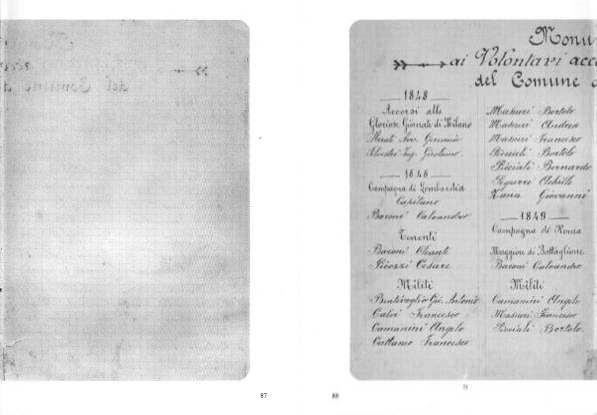 Monu
ai Volontari acc
del Comune
1848
Accorsi alle
Gloriose Giornate di Milano
Silvestri Ing. Girolamo
1848
Campagna di Lombardia
Capitano
Baroni Caleandro
Tenenti
Baroni Oleanti
Picozzi Cesare
Militi
Bentivoglio Gio. Antonio
Calvi Francesco
Camanini Angelo
Cattaneo Francesco
Masneri Bortolo
Masneri Andrea
Masneri Francesco
Picciali Bortolo
Picciali Bernardo
Achille
Zana Giovanni
1849
Campagna di Roma
Maggiore di Battaglione
Baroni Caleandro
Militi
Camanini Angelo
Masneri Francesco
Picciali Bortolo
87
88